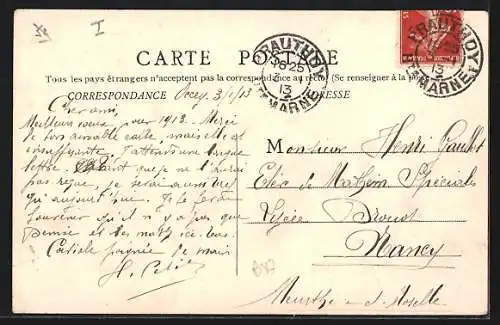 I
CARTE POSTALE
Tous les pays étrangers n'acceptent pas la correspondance au recto (Se renseigner à la poste)
CORRESPONDANCE
ADRESSE
PRAUTHOY
16 25
3
13
HTE MARNE
PRAUTHOY
13
HTE MARNE
Occey, 3/1/13
Cher ami,
Meilleurs vœux pour 1913. Merci
de ton aimable carte, mais elle est
insuffisante. J'attends une longue
lettre. tant que je ne l'aurai
pas reçue, je serai aussi bref
qu'aujourd'hui. Je te ferai
souvenir qu'il n'y a pas que
et les math ici-bas.
Cordiale poignée de main
H. Petit
Monsieur Henri Gaudot
Elève de Mathém Spéciales
Lycée Drouot
Nancy
Meurthe-et-Moselle